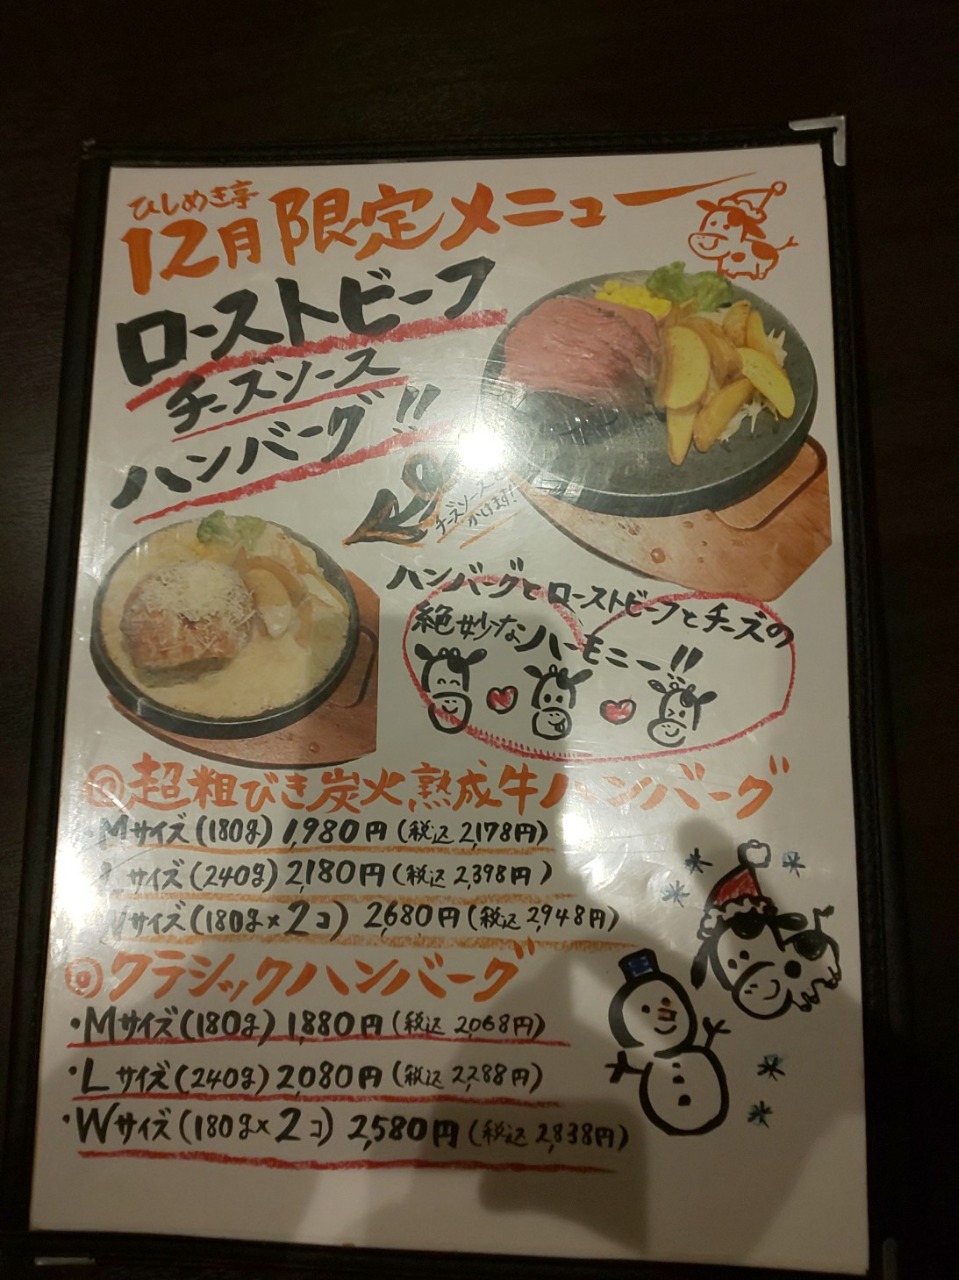 ひしめき亭
12月限定メニュー
ローストビーフ
チーズソース
ハンバーグ!!
チーズソースを
かけます!
ハンバーグとローストビーフとチーズの
絶妙なハーモニー!!
◎超粗びき炭火熟成牛ハンバーグ
・Mサイズ(180g)1,980円(税込2,178円)
・Lサイズ(240g)2,180円(税込2,398円)
・Wサイズ(180g×2コ)2,680円(税込2,948円)
◎クラシックハンバーグ
・Mサイズ(180g)1,880円(税込2,068円)
・Lサイズ(240g)2,080円(税込2,288円)
・Wサイズ(180g×2コ)2,580円(税込2,838円)